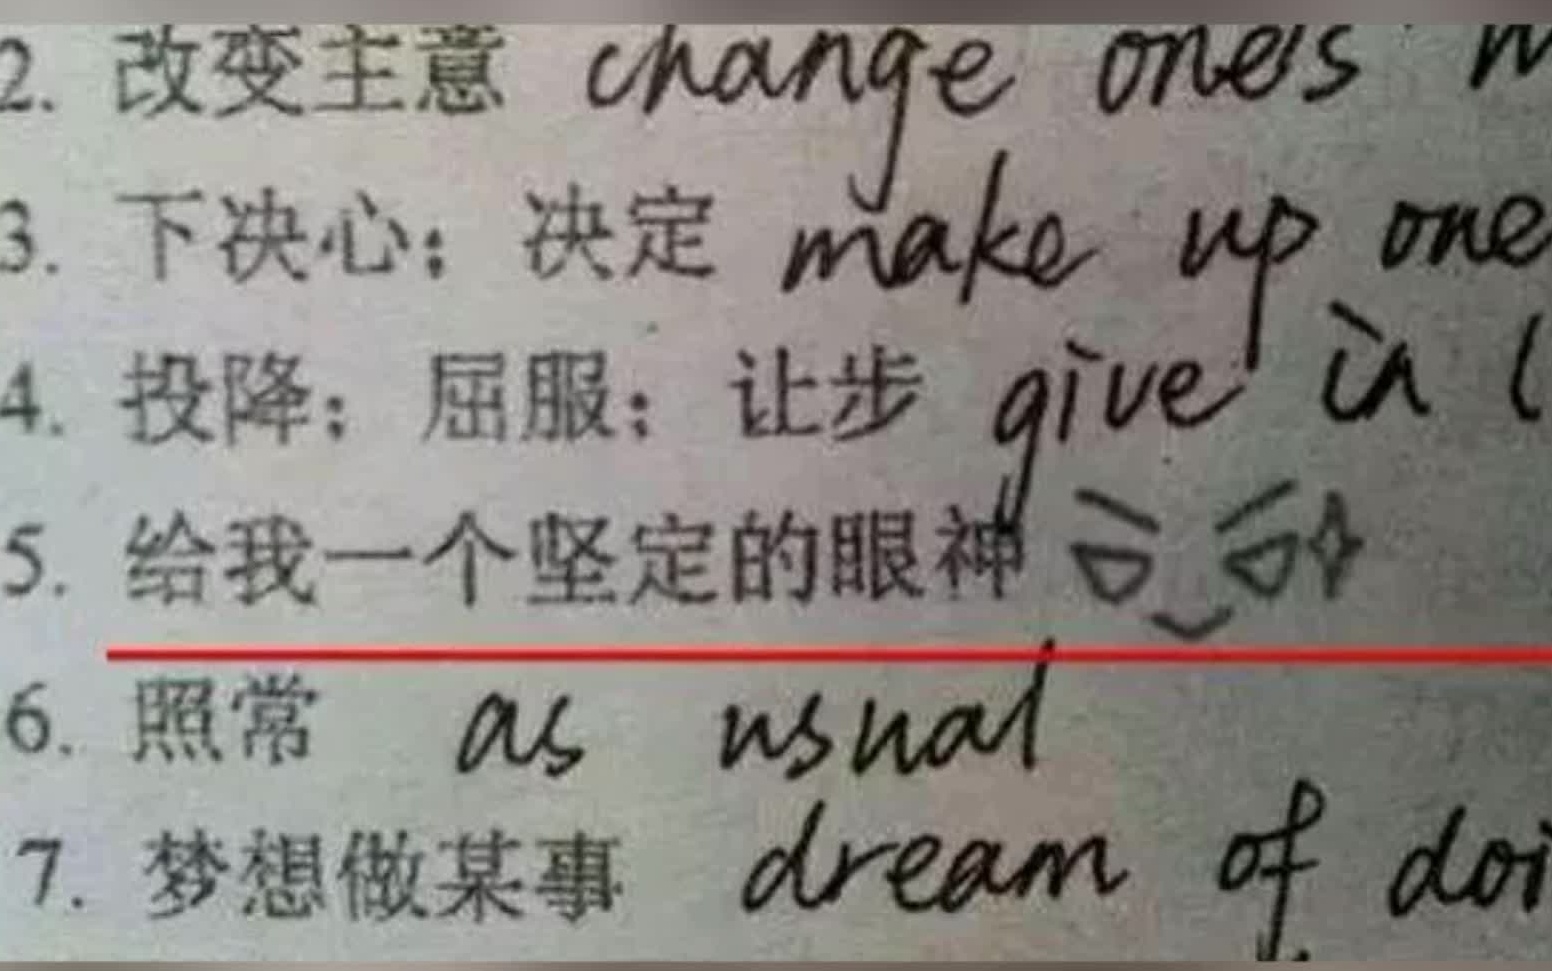 2. 改变主意 change one's
3. 下决心；决定 make up one
4. 投降；屈服；让步 give in (
5. 给我一个坚定的眼神
6. 照常 as usual
7. 梦想做某事 dream of doi